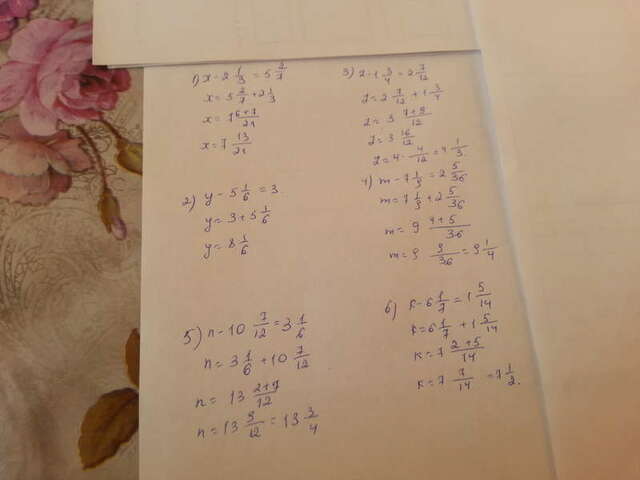 1) x - 2 1/3 = 5 2/7
x = 5 2/7 + 2 1/3
x = 7 6+7/21
x = 7 13/21
2) y - 5 1/6 = 3
y = 3 + 5 1/6
y = 8 1/6
3) z - 1 3/4 = 2 7/12
z = 2 7/12 + 1 3/4
z = 3 7+9/12
z = 3 16/12
z = 4 4/12 = 4 1/3
4) m - 7 1/9 = 2 5/36
m = 7 1/9 + 2 5/36
m = 9 4+5/36
m = 9 9/36 = 9 1/4
5) n - 10 7/12 = 3 1/6
n = 3 1/6 + 10 7/12
n = 13 2+7/12
n = 13 9/12 = 13 3/4
6) k - 6 1/7 = 1 5/14
k = 6 1/7 + 1 5/14
k = 7 2+5/14
k = 7 7/14 = 7 1/2.